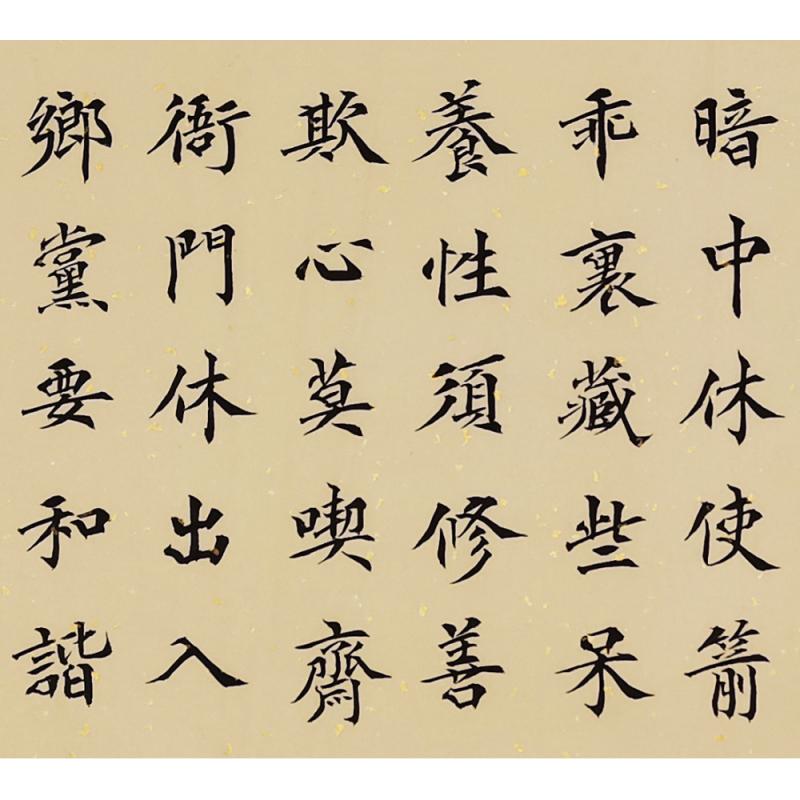 暗中休使箭
乖裏藏些呆
養性須修善
欺心莫喫齋
衙門休出入
鄉黨要和諧